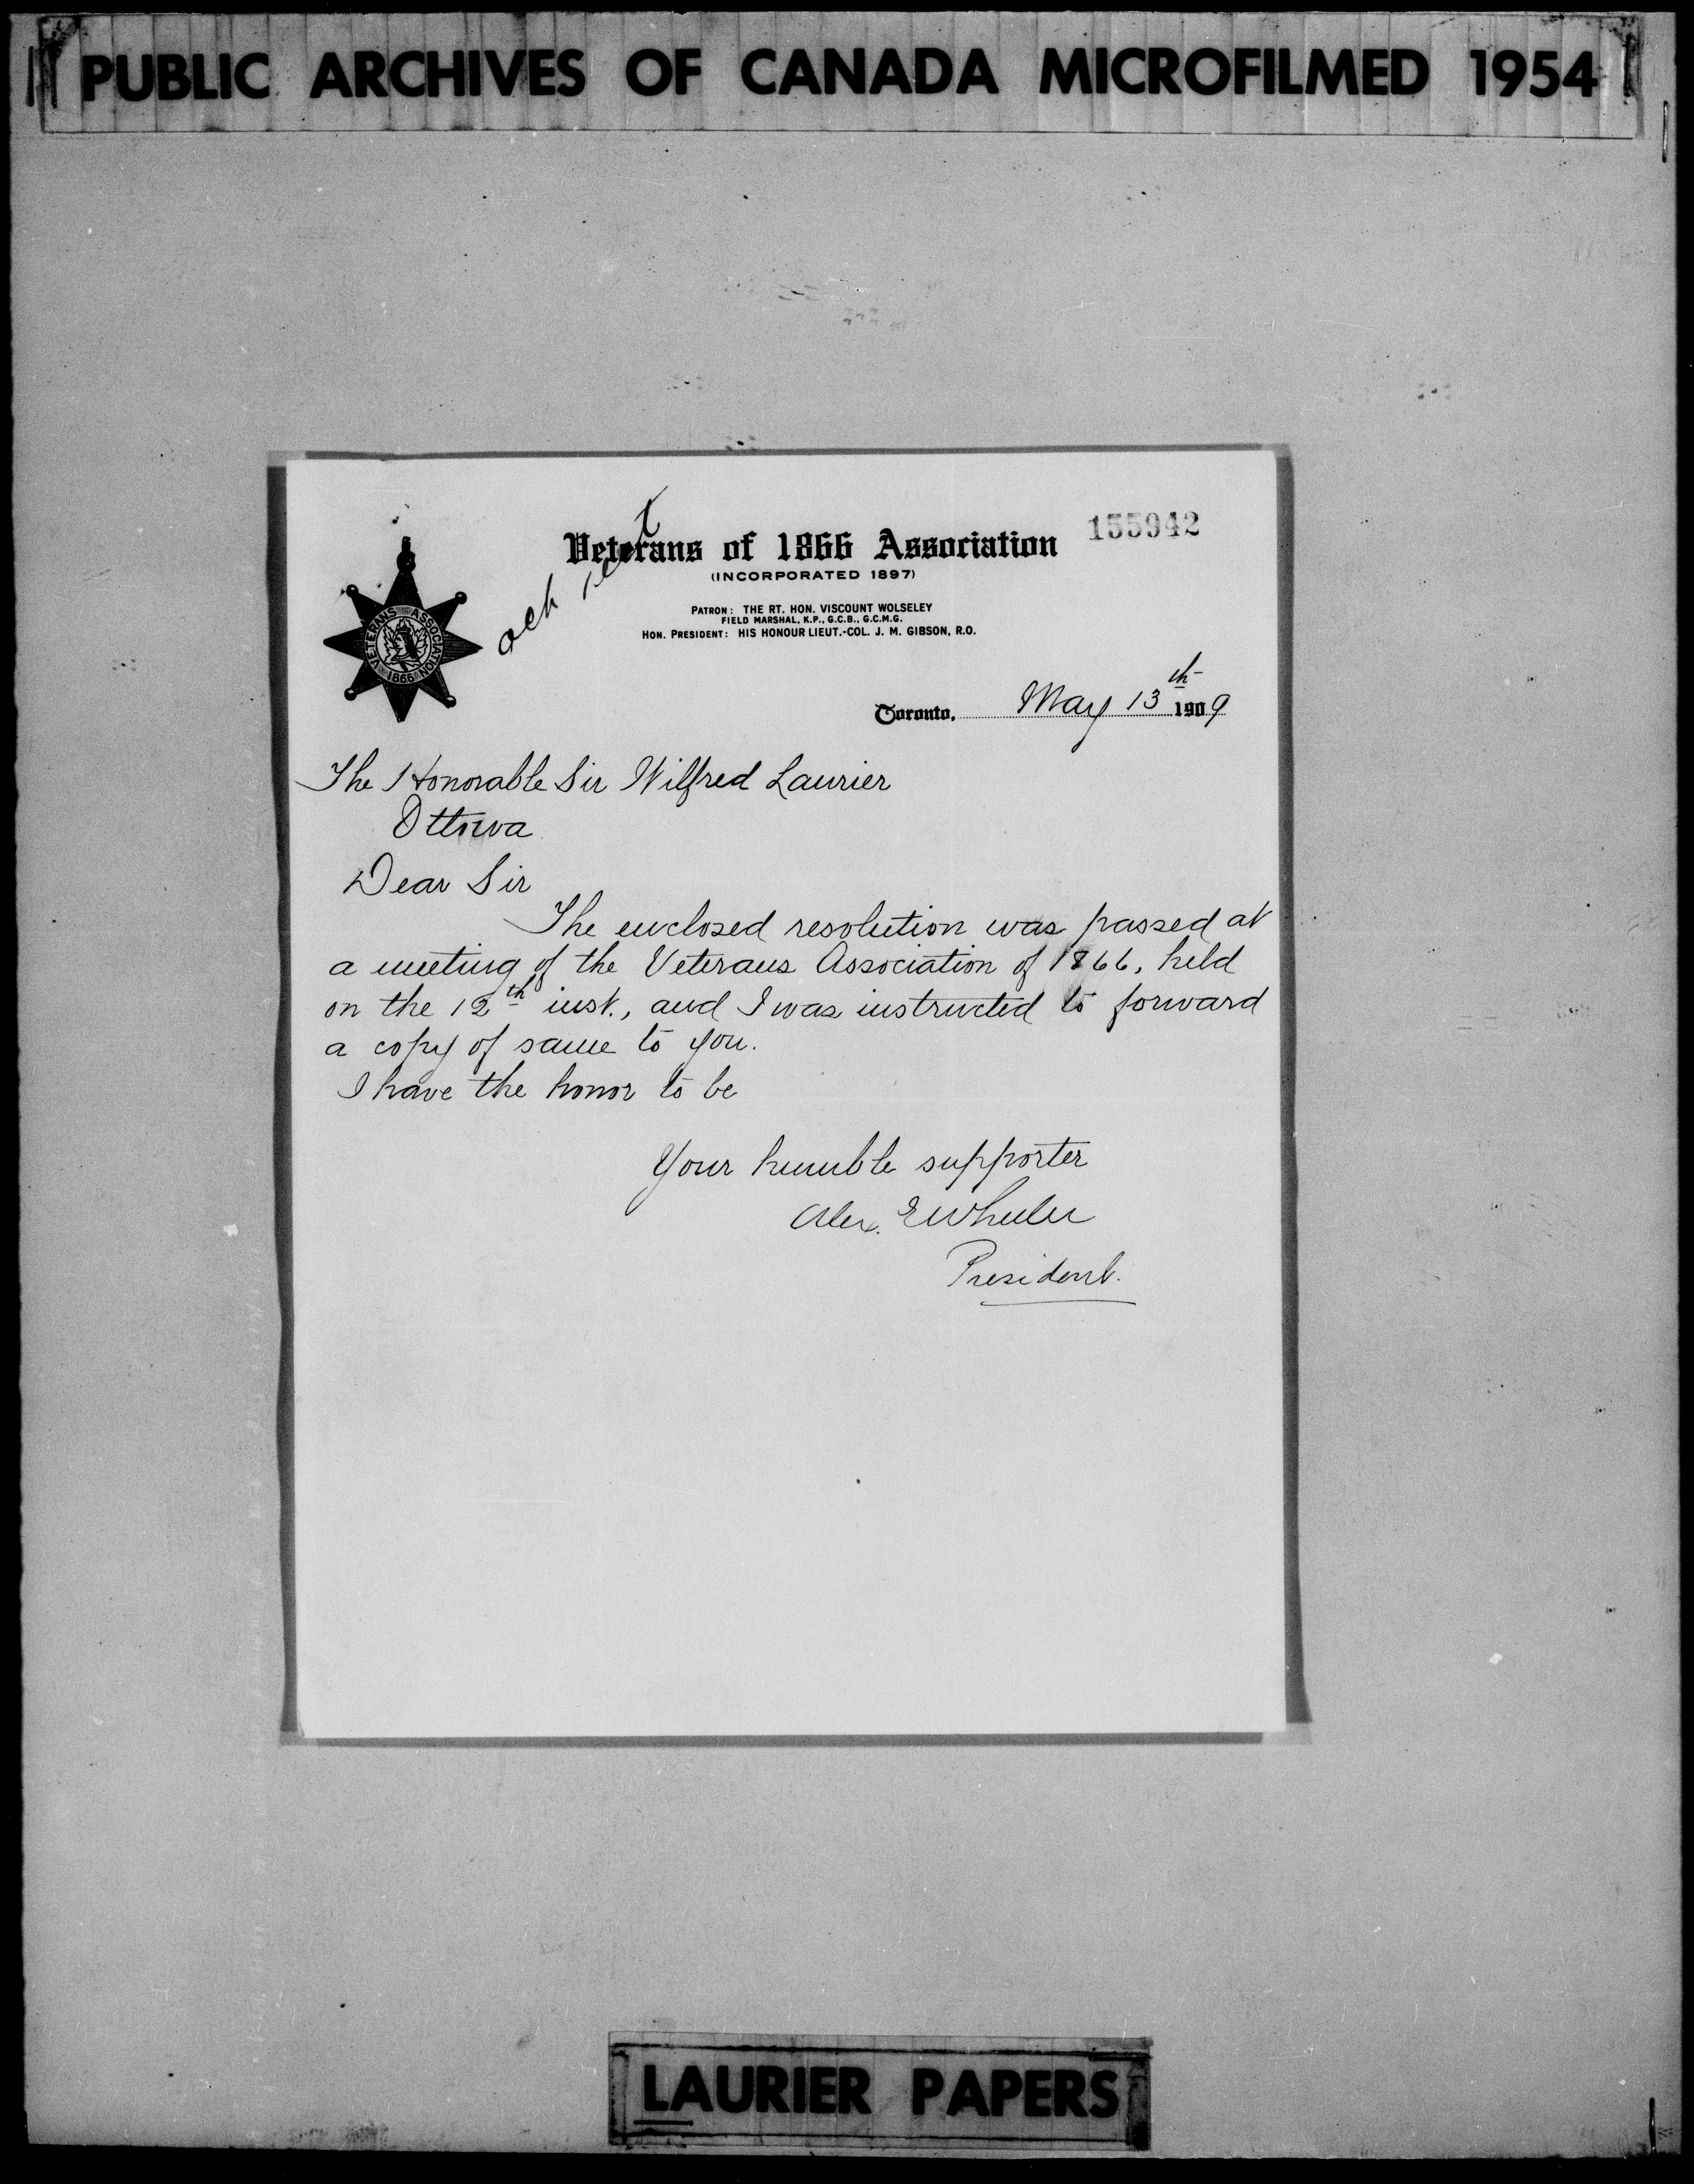 PUBLIC ARCHIVES OF CANADA MICROFILMED 1954
155942
Veterans of 1866 Association
(INCORPORATED 1897)
PATRON: THE RT. HON. VISCOUNT WOLSELEY
FIELD MARSHAL, K.P., G.C.B., G.C.M.G.
HON. PRESIDENT: HIS HONOUR LIEUT.-COL. J. M. GIBSON, R.O.
VETERANS ASSOCIATION
1866
ack
Toronto, May 13th 1909
The Honorable Sir Wilfred Laurier
Ottowa
Dear Sir
The enclosed resolution was passed at
a meeting of the Veterans Association of 1866, held
on the 12th inst., and I was instructed to forward
a copy of same to you.
I have the honor to be
Your humble supporter
Alex. E Wheeler
President.
LAURIER PAPERS